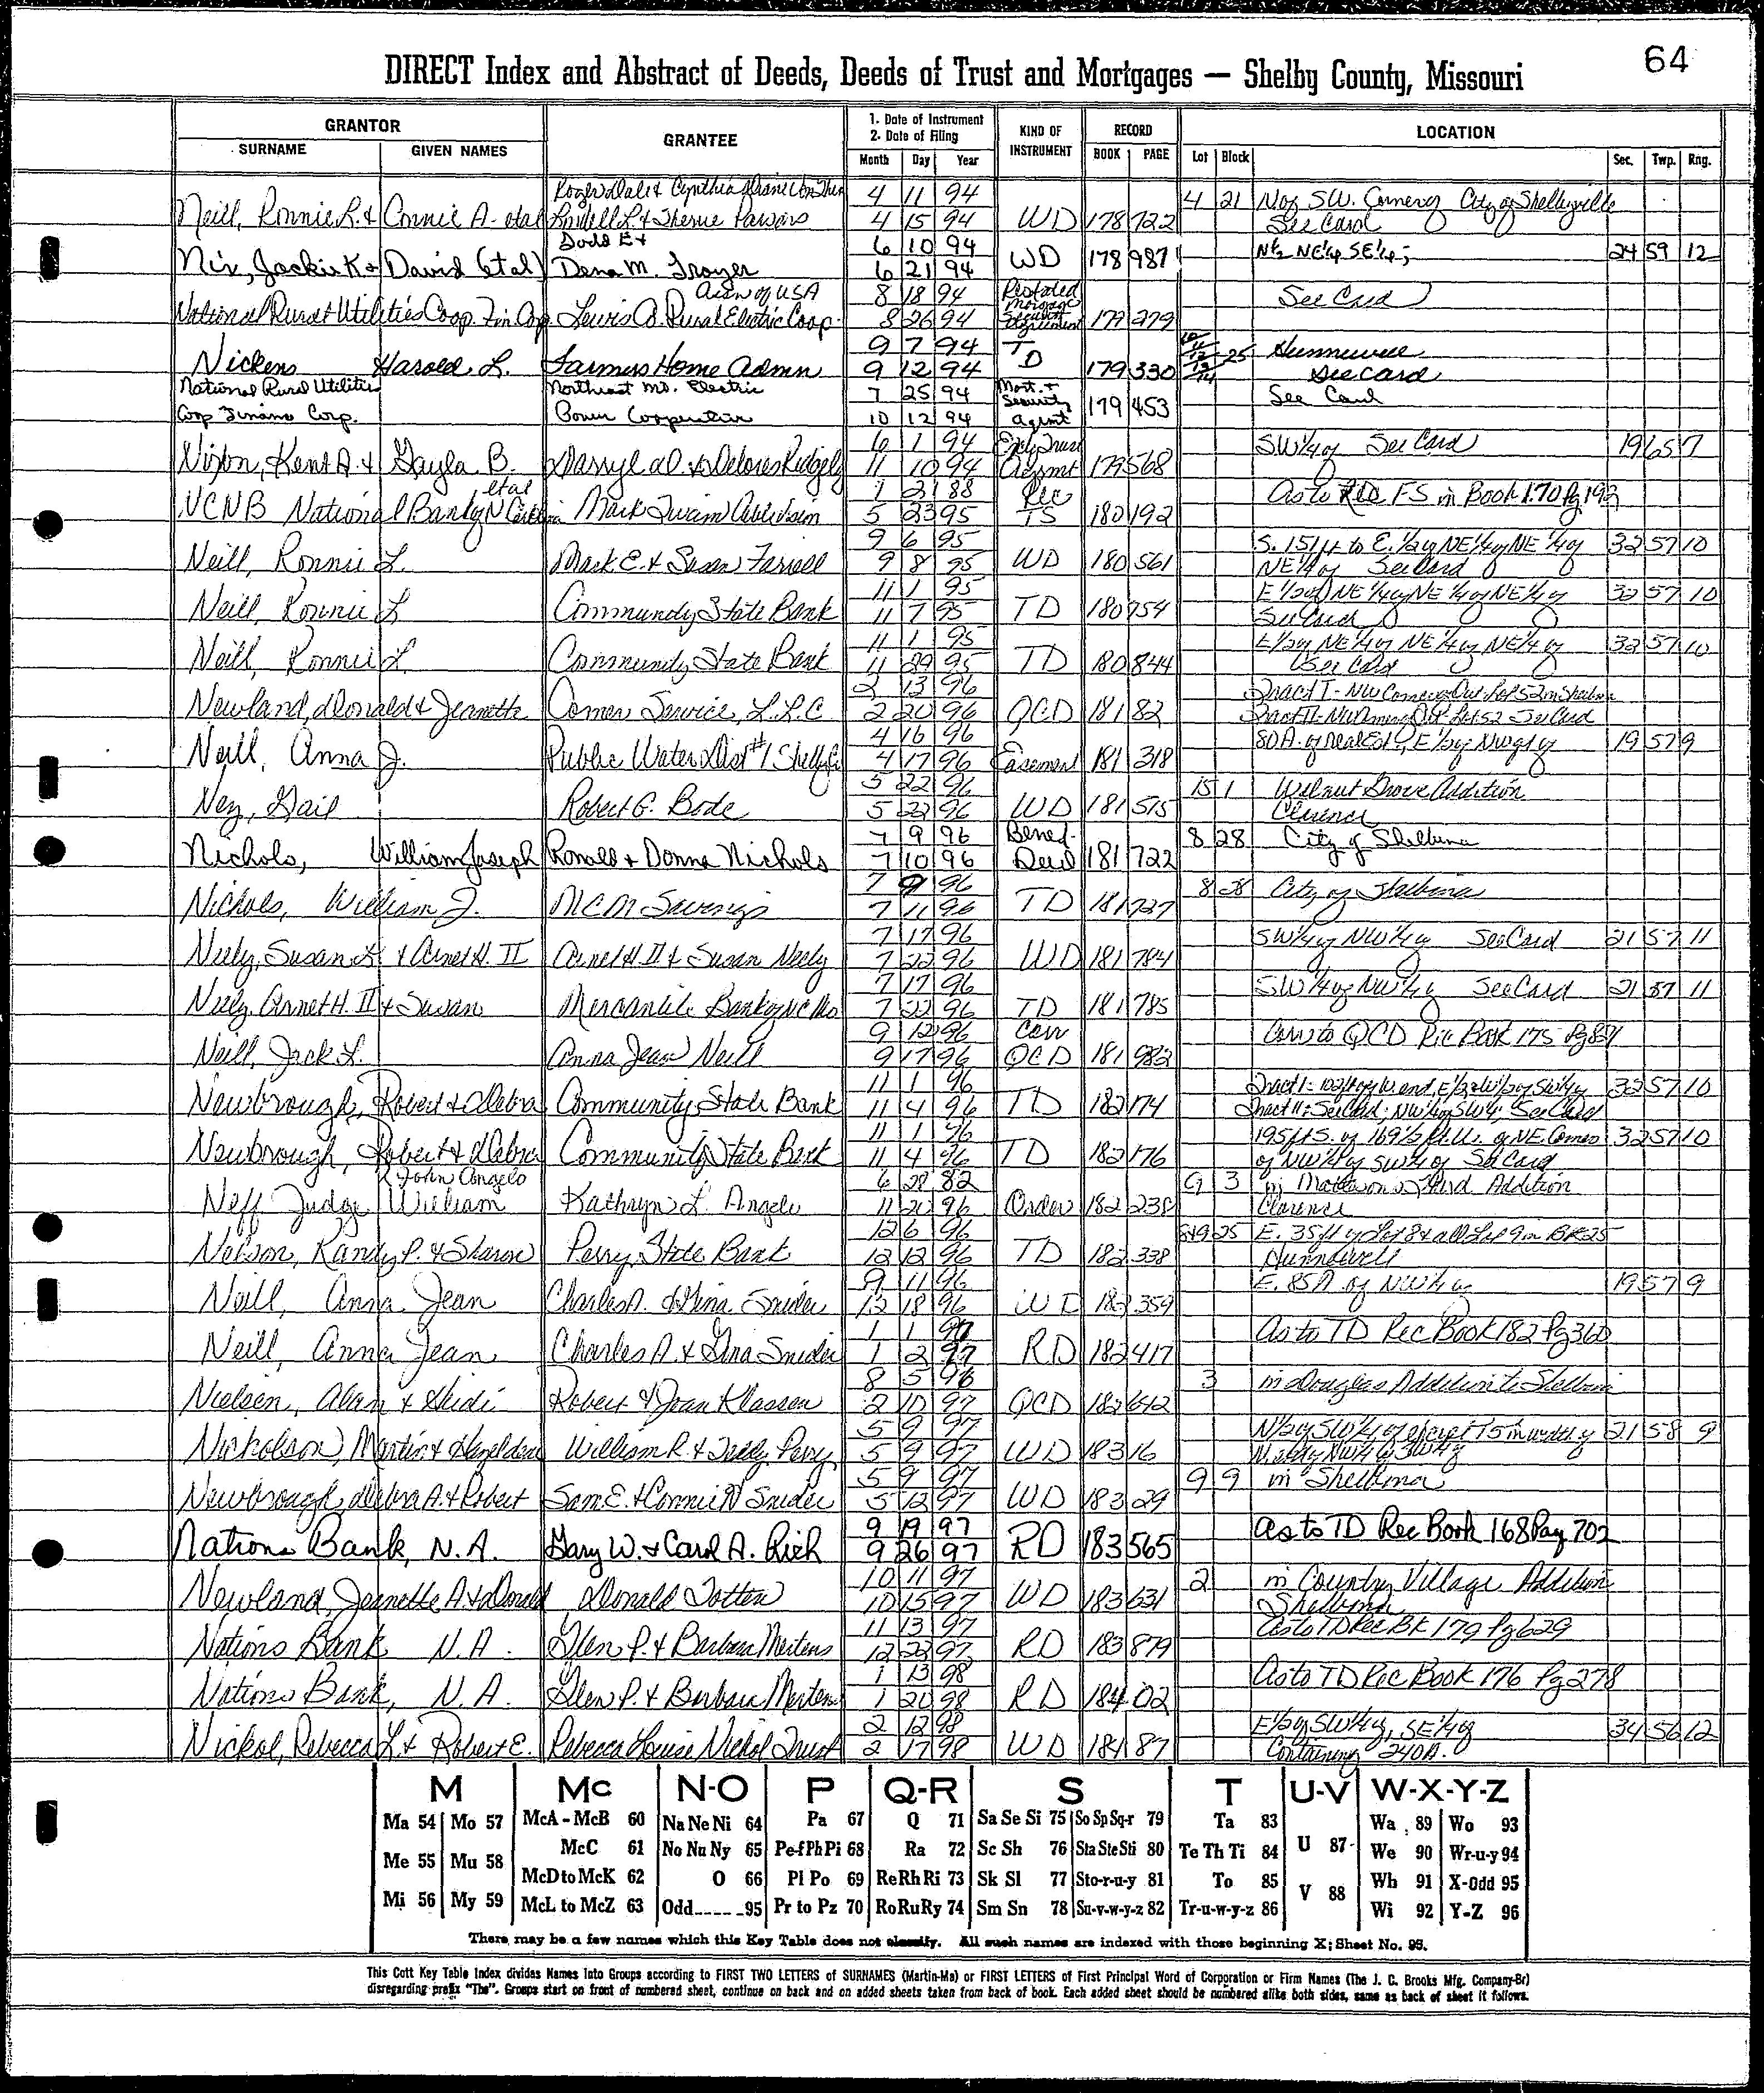 64
DIRECT Index and Abstract of Deeds, Deeds of Trust and Mortgages — Shelby County, Missouri
GRANTOR
SURNAME GIVEN NAMES
GRANTEE
1. Date of Instrument
2. Date of Filing
Month Day Year
KIND OF INSTRUMENT
RECORD
BOOK PAGE
LOCATION
Lot Block Sec. Twp. Rng.
Roger Dale & Cynthia 4 11 94 4 21 N of SW. Corner of City of Shelbyville
Neill, Ronnie L. & Connie A- etal Lindell L. & Sherrie Parsons 4 15 94 WD 178 722 See Card
Dodd E & 6 10 94 N½ NE¼ SE¼; 24 59 12
Nix, Jackie K & David (etal) Dena M. Troyer 6 21 94 WD 178 987
Ass'n of USA 8 18 94 Restated Mortgage See Card
National Rural Utilities Coop. Fin. Corp. Lewis Co. Rural Electric Coop. 8 26 94 Security Agreement 179 279
9 7 94 25 Hunnewell
Nickens Harold L. Farmers Home Admn 9 12 94 TD 179 330 See Card
National Rural Utilities Northeast Mo. Electric 7 25 94 Mort. & Security See Card
Coop Finance Corp. Power Cooperative 10 12 94 Agmt 179 453
6 1 94 SW¼ of See Card 19 65 7
Nixon, Kent A. & Gayla B. Darryl D. & Delores Ridgely 11 10 94 179 568
etal 1 21 88 Rec As to FS in Book 170 Pg 192
NCNB National Bank of N Carolina Mark Twain 5 23 95 TS 180 192
9 6 95 S. 151 ft to E. 1/2 of NE 1/4 of NE 1/4 of 32 57 10
Neill, Ronnie L Mark E. & Susan Farrell 9 8 95 WD 180 561 NE 1/4 of See Card
11 1 95 E 1/2 of NE 1/4 of NE 1/4 of NE 1/4 of 32 57 10
Neill, Ronnie L Community State Bank 11 7 95 TD 180 754 See Card
11 1 95 E 1/2 of NE 1/4 of NE 1/4 of NE 1/4 of 32 57 10
Neill, Ronnie L. Community State Bank 11 29 95 TD 180 844 See Card
2 13 96 Tract I- NW Corner Out Lot 52 in Shelbina
Newland, Donald & Jeanette Comer Service, L.L.C 2 20 96 QCD 181 82 Tract II- NW Corner Out Lot 52 See Card
4 16 96 80 A. of Real Est, E 1/2 of NW 1/4 of 19 57 9
Neill, Anna J. Public Water Dist #1 Shelby Co 4 17 96 Easement 181 318
5 22 96 15 1 Walnut Grove Addition
Ney, Gail Robert G. Bode 5 22 96 WD 181 515 Clarence
7 9 96 Benef. 8 28 City of Shelbina
Nichols, William Joseph Ronald & Donna Nichols 7 10 96 Deed 181 722
7 9 96 8 28 City of Shelbina
Nichols, William J. MCM Savings 7 11 96 TD 181 727
7 17 96 SW 1/4 of NW 1/4 of See Card 21 57 11
Neely, Susan & Arnet H. II Arnet H. II & Susan Neely 7 22 96 WD 181 784
7 17 96 SW 1/4 of NW 1/4 of See Card 21 57 11
Neely, Arnet H. II & Susan Mercantile Bank of NC Mo 7 22 96 TD 181 785
9 12 96 Corr Corr to QCD Rec Book 175 Pg 821
Neill, Jack L. Anna Jean Neill 9 17 96 QCD 181 982
11 1 96 32 57 10
Newbrough, Robert & Debra Community State Bank 11 4 96 TD 182 174 Tract II: See Card; NW 1/4 of SW 1/4; See Card
11 1 96 195 ft S. of 169 1/2 ft. W. of NE Corner 32 57 10
Newbrough, Robert & Debra Community State Bank 11 4 96 TD 182 176 of NW 1/4 of SW 1/4 of See Card
John Angelo 6 28 82 9 3 in Third Addition
Neff Judge William Kathryn L. Angelo 11 20 96 Order 182 238 Clarence
12 6 96 8&9 25 E. 35 ft of Lot 8 & all Lot 9 in BK 25
Nelson, Randy P. & Sharon Perry State Bank 12 12 96 TD 182 338 Hunnewell
9 11 96 E. 85 A. of NW 1/4 of 19 57 9
Neill, Anna Jean Charles A. & Gina Snider 12 18 96 WD 182 359
1 1 97 As to TD Rec Book 182 Pg 360
Neill, Anna Jean Charles A. & Gina Snider 1 2 97 RD 182 417
8 5 96 3 in Douglas Addition to Shelbina
Nielsen, Alan & Heidi Robert & Joan Klassen 2 10 97 QCD 182 642
5 9 97 N 1/2 of SW 1/4 of except 75 in width of 21 58 9
Nicholson, Martin & William R. & Perry 5 9 97 WD 183 16
5 9 97 9 9 in Shelbina
Newbrough, Debra A. & Robert Sam E. & Connie Snider 5 12 97 WD 183 29
9 19 97 As to TD Rec Book 168 Pag 702
Nations Bank, N.A. Gary W. & Carol A. Rich 9 26 97 RD 183 565
10 11 97 2 in Country Village Addition
Newland, Jeanette A. & Donald Donald Totten 10 15 97 WD 183 631 Shelbina
11 13 97 As to TD Rec BK 179 Pg 629
Nations Bank N.A. Glen P. & Barbara Mertens 12 22 97 RD 183 879
1 13 98 As to TD Rec Book 176 Pg 278
Nations Bank, N.A. Glen P. & Barbara Mertens 1 20 98 RD 184 02
2 12 98 E 1/2 of SW 1/4 of, SE 1/4 of 34 56 12
Nickol, Rebecca L. & Robert E. Rebecca Louise Nickol Trust 2 17 98 WD 184 87 Containing 240 A.
M Mc N-O P Q-R S T U-V W-X-Y-Z
Ma 54 Mo 57 McA - McB 60 Na Ne Ni 64 Pa 67 Q 71 Sa Se Si 75 So Sp Sq-r 79 Ta 83 U 87 Wa 89 Wo 93
Me 55 Mu 58 McC 61 No Nu Ny 65 Pe-f Ph Pi 68 Ra 72 Sc Sh 76 Sta Ste Sti 80 Te Th Ti 84 We 90 Wr-u-y 94
McD to McK 62 O 66 Pl Po 69 Re Rh Ri 73 Sk Sl 77 Sto-r-u-y 81 To 85 V 88 Wh 91 X-Odd 95
Mi 56 My 59 McL to McZ 63 Odd-----95 Pr to Pz 70 Ro Ru Ry 74 Sm Sn 78 Su-v-w-y-z 82 Tr-u-w-y-z 86 Wi 92 Y-Z 96
There may be a few names which this Key Table does not classify. All such names are indexed with those beginning X; Sheet No. 95.
This Cott Key Table Index divides Names Into Groups according to FIRST TWO LETTERS of SURNAMES (Martin-Ma) or FIRST LETTERS of First Principal Word of Corporation or Firm Names (The J. C. Brooks Mfg. Company-Br)
disregarding prefix "The". Groups start on front of numbered sheet, continue on back and on added sheets taken from back of book. Each added sheet should be numbered alike both sides, same as back of sheet it follows.